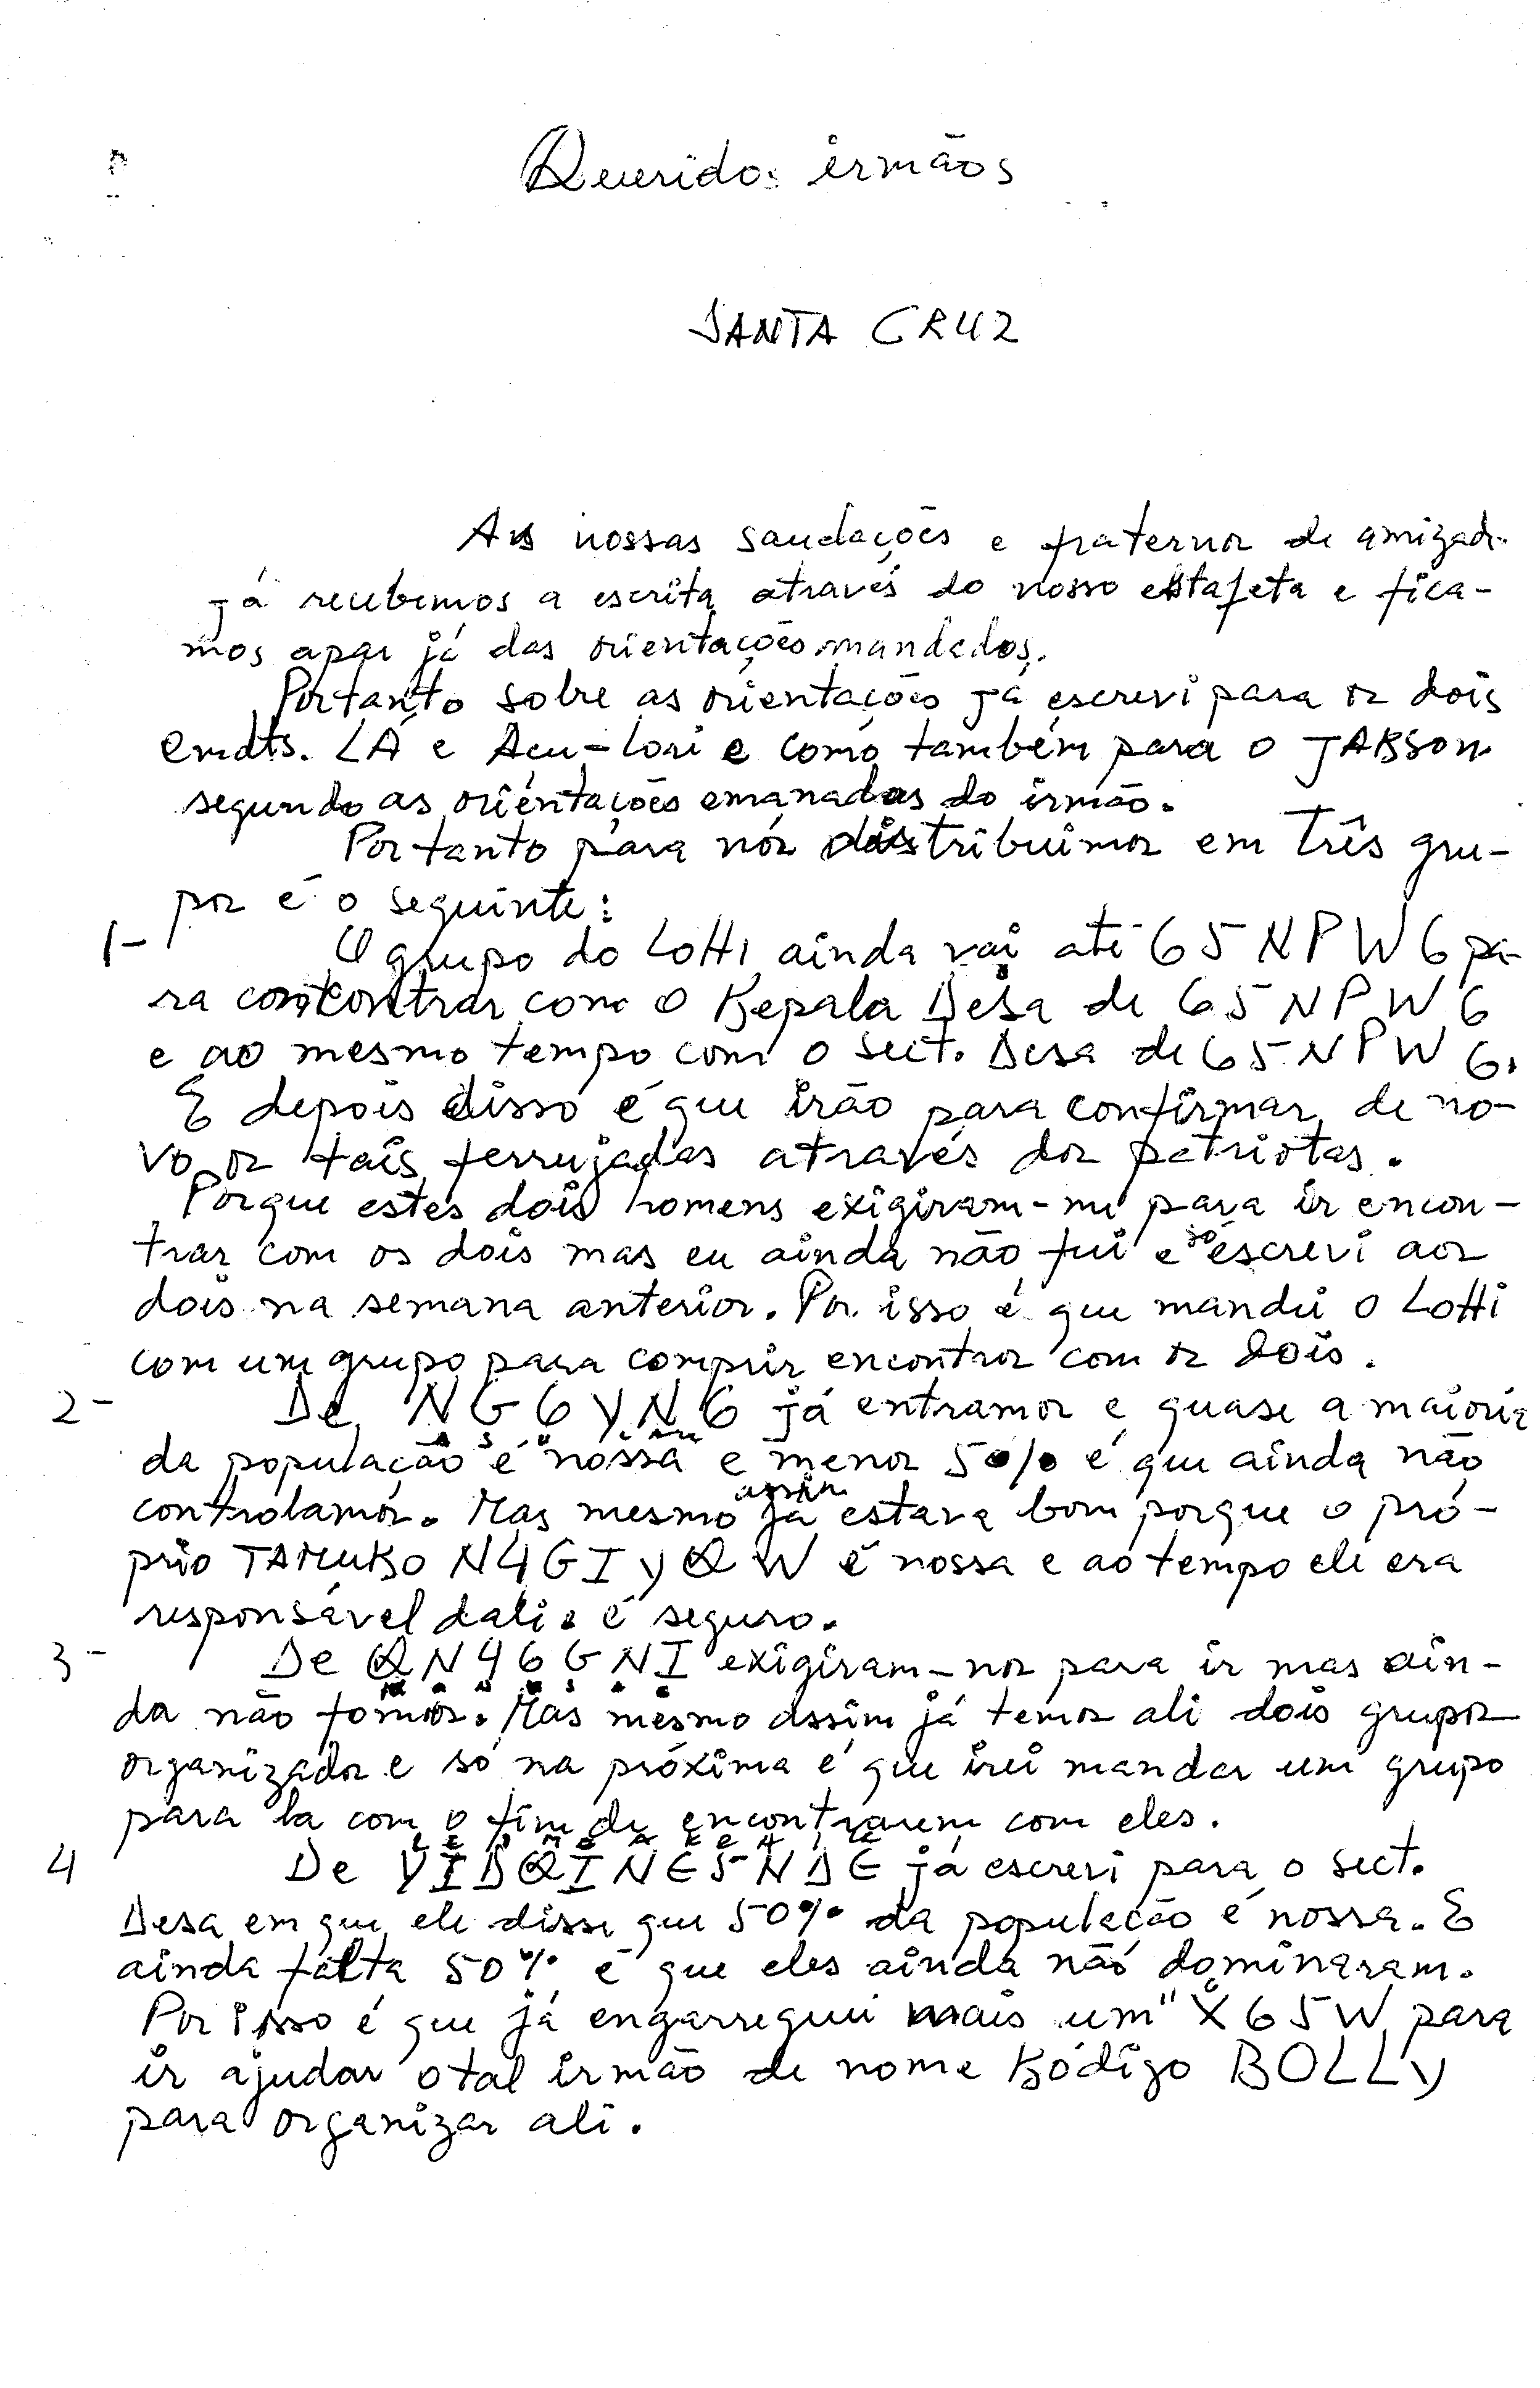 Queridos irmãos
SANTA CRUZ
As nossas saudações e fraternos de amizade
já recebemos a escrita através do nosso estafeta e fica-
mos apar já das orientações mandados.
Portanto sobre as orientações já escrevi para os dois
cmdts. LÁ e Acu-lori e como também para o JAKSON
segundo as orientações emanadas do irmão.
Portanto para nós distribuimos em três gru-
pos é o seguinte:
1- O grupo do Lotti ainda vai até 65NPW6 pa-
ra contrar com o Kepala Desa de 65NPW6
e ao mesmo tempo com o sect. Desa de 65NPW6.
E depois disso é que irão para confirmar de no-
vo os tais ferrujadas através dos patriotas.
Porque estes dois homens exigiram-me para ir encon-
trar com os dois mas eu ainda não fui e só escrevi aos
dois na semana anterior. Por isso é que mandei o Lotti
com um grupo para comprir encontros com os dois.
2- De NG6YN6 já entramos e quase a maioria
da população é nossa e menos 50% é que ainda não
controlamos. Mas mesmo assim já estava bom porque o pró-
prio TAMUKO N4GIYQW é nossa e ao tempo ele era
responsável dali e é seguro.
3- De QN46GNI exigiram-nos para ir mas ain-
da não fomos. Mas mesmo assim já temos ali dois grupos
organizados e só na próxima é que irei mandar um grupo
para la com o fim de encontrarem com eles.
4 De YIDQINE5NDE já escrevi para o sect.
Desa em que ele disse que 50% da população é nossa. E
ainda falta 50% é que eles ainda não dominaram.
Por isso é que já engarreguei mais um "X65W para
ir ajudar o tal irmão de nome Kódigo BOLLY
para organizar ali.